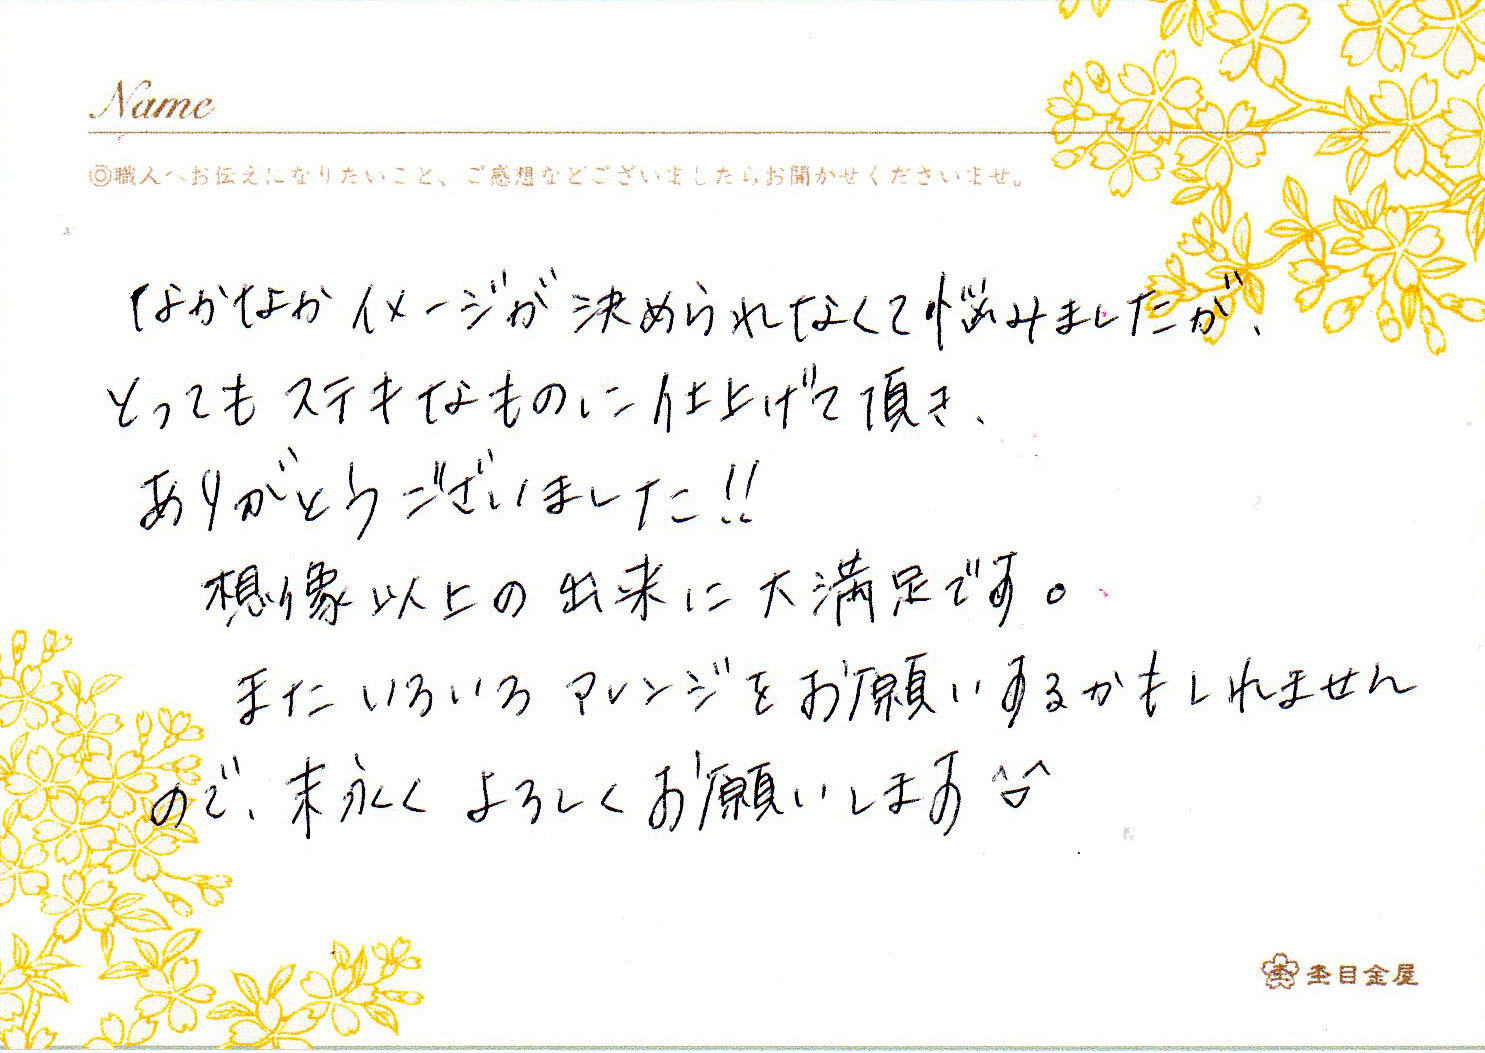 Name
◎職人へお伝えになりたいこと、ご感想などございましたらお聞かせくださいませ。
なかなかイメージが決められなくて悩みましたが、
とってもステキなものに仕上げて頂き、
ありがとうございました!!
想像以上の出来に大満足です。
またいろいろアレンジをお願いするかもしれません
ので、末永くよろしくお願いします^▽^
杢目金屋